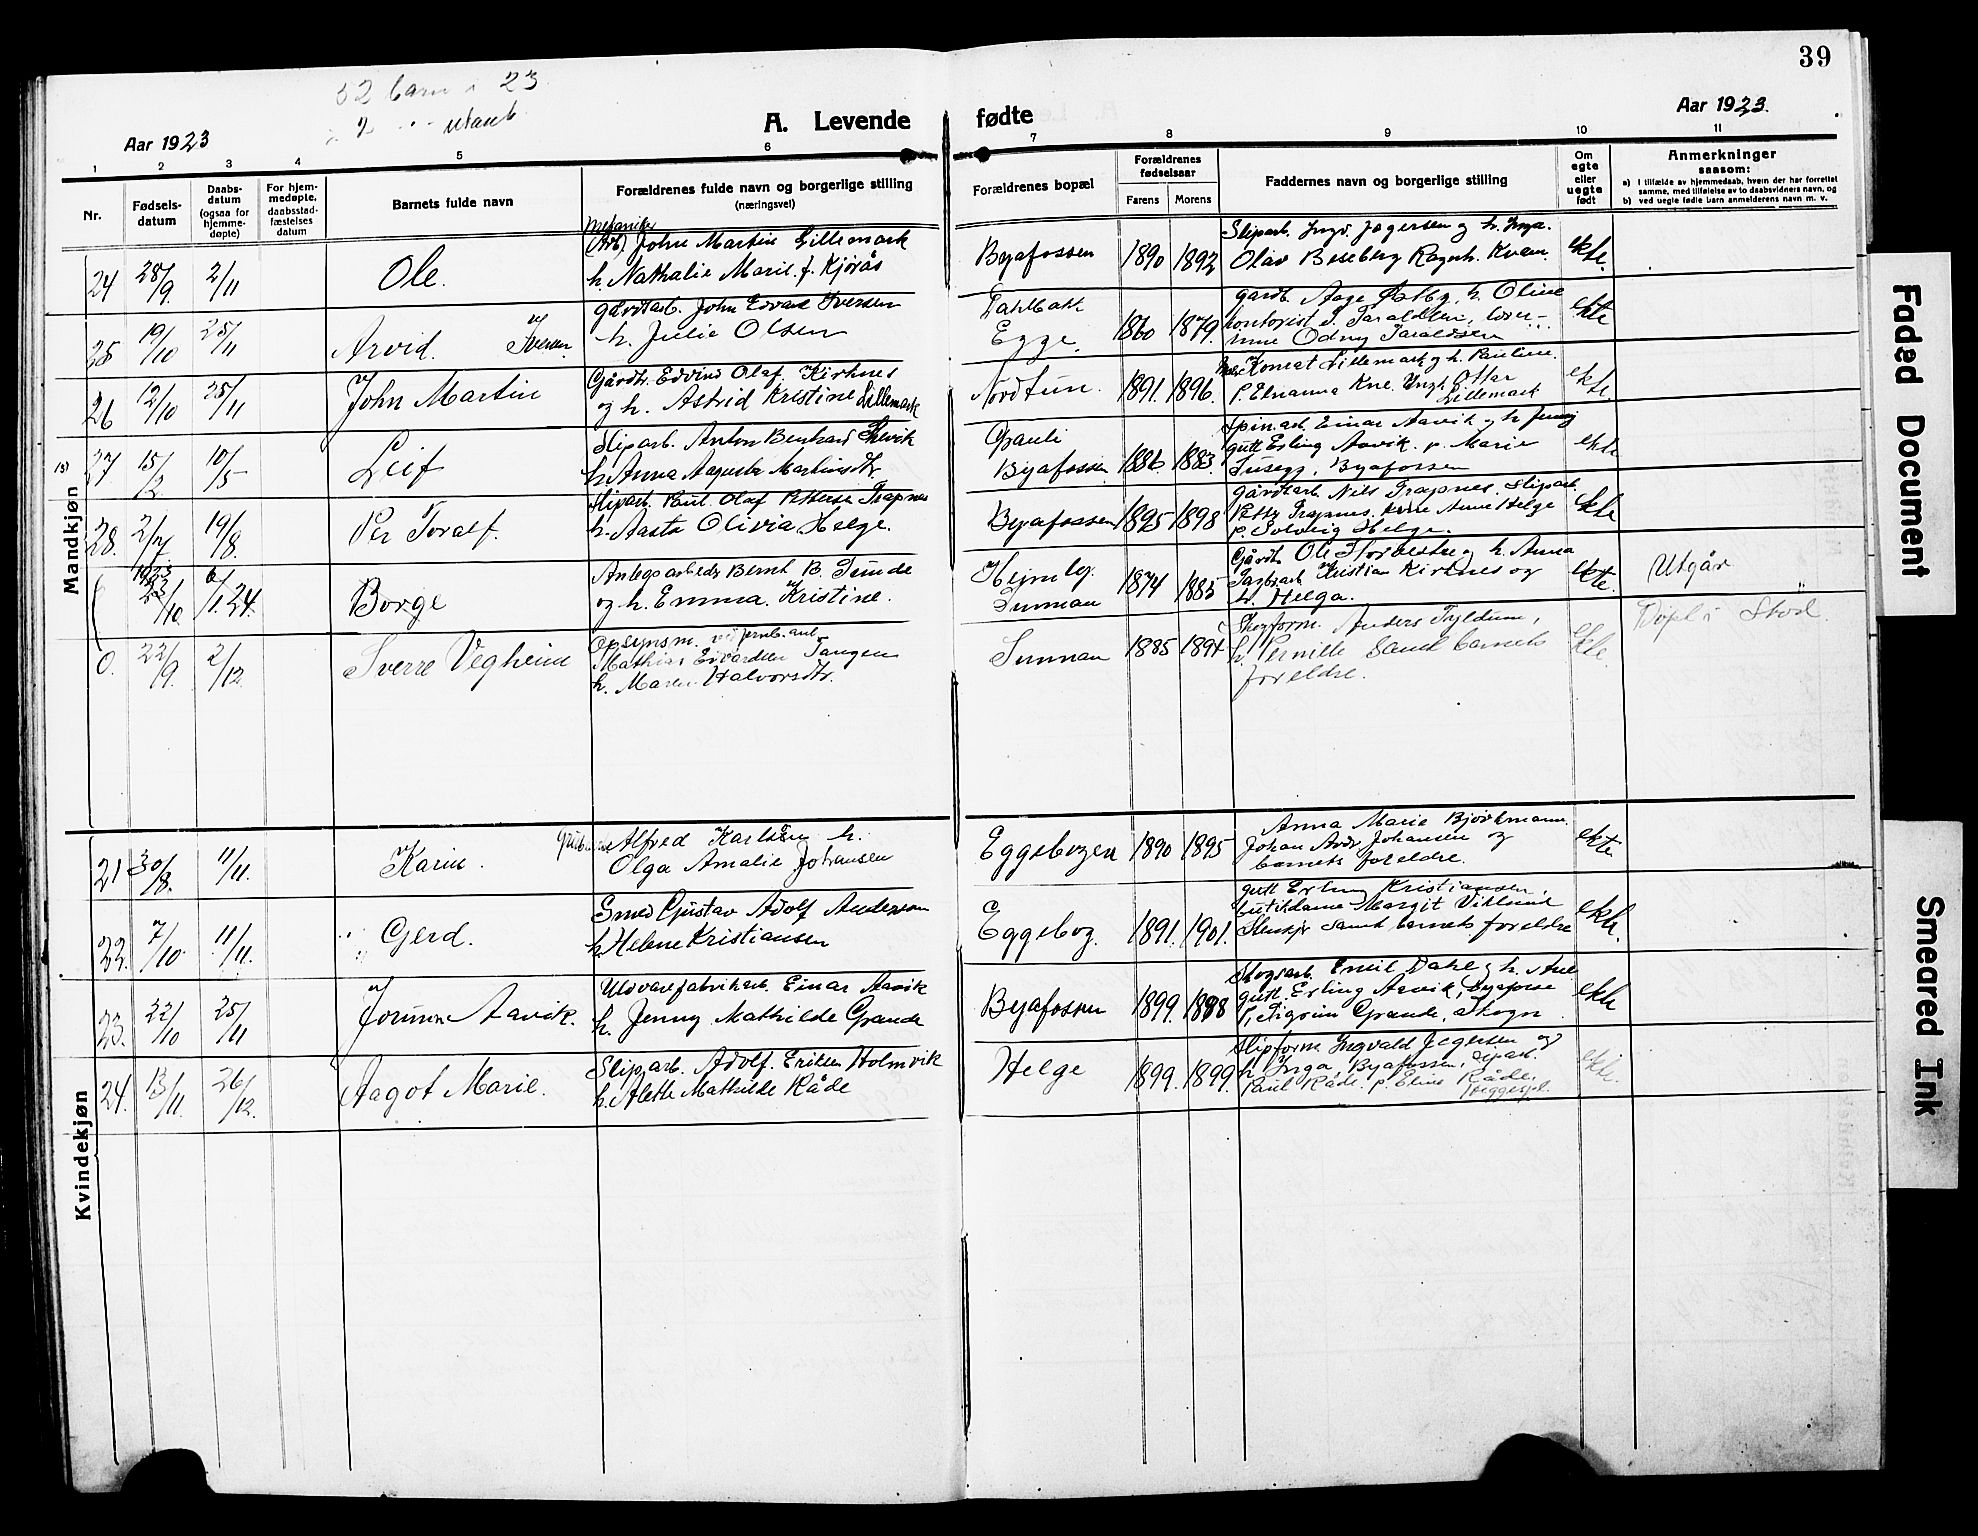 39
52 barn i 23
2 utenb.
Aar 1923
A. Levende fødte
Aar 1923.
1 2 3 4 5 6 7 8 9 10 11
Nr.
Fødsels-
datum
Daabs-
datum
(ogsaa for
hjemme-
døpte)
For hjem-
medøpte,
daabsstad-
fæstelses
datum
Barnets fulde navn
Forældrenes fulde navn og borgerlige stilling
(næringsvei)
Forældrenes bopæl
Forældrenes
fødselsaar
Farens Morens
Faddernes navn og borgerlige stilling
Om
egte
eller
uegte
født
Anmerkninger
saasom:
a) I tilfælde av hjemmedaab, hvem der har forrettet
samme, med tilføielse av to daabsvidners navn, og
b) ved uegte fødte barn anmelderens navn m. v.
Mandkjøn
24 28/9. 2/11 Ole.
Mekaniker
Arb. John Martin Lillemark
h. Nathalie Marie f. Kjørås
Byafossen 1890 1892
Sliparb. Ingv. Jegersen og h. Inga.
Olav Beseberg Ragnh. Kvam.
ekte.
25 19/10 25/11 Arvid. Iversen.
Gårdarb. John Edvard Iversen
h. Julie Olsen
Egge. 1860 1879.
Gardb. Aage Østby, h. Oline
kontorist S. Taraldsen,
Odny Taraldsen
ekte
26 12/10 25/11 John Martin
Gårdbr. Edvind Olaf Kirknes
og h. Astrid Kristine Lillemark
Nordtun. 1891. 1896.
Konrad Lillemark og h. Pauline.
P. Elnanna Kne. Ungk. Ottar
Lillemark
ekte.
27 15/2 10/5 Leif
Sliparb. Anton Benhard
h. Anna Augusta Martinsdtr.
Byafossen 1886. 1883.
Spin.arb. Einar Aavik og h. Jenny
gutt Erling Aavik. p. Marie
Tusegg, Byafossen
ekte
28. 2/7 19/8. Per Toralf.
Sliparb. Paul Olaf Pettersen Trapnes
h. Aasta Olivia Helge.
Byafossen 1895 1898
Gårdarb. Nils Trapnes. Sliparb.
Petter Trapnes, Anne Helge
p. Solveig Helge.
ekte
1923 23/10 6/1.24. Borge
Anlegsarbeider Bernt B. Tunde
og h. Emma Kristine.
Sunnan 1874 1885
Gårdb. Ole Storvestre og h. Anna
Kristian Kirknes og
h. Helga.
ekte. Utgår
0. 22/9. 2/12. Sverre Vegheim
Opsynsm. ved jernb.anl.
Mathias Edvardsen Tangen
h. Maren Halvorsdtr.
Sunnan 1885 1894
Skogform. Anders Tyldum,
h. Pernille samt barnets
foreldre.
ekte. Døpt i Stod
Kvindekjøn
21 30/8. 11/11. Karin.
Alfred Karlsen h.
Olga Amalie Johansen
Eggebogen 1890 1895
Anna Marie Bjørkmann.
Johan Ardr. Johansen og
barnets foreldre.
ekte
22. 7/10. 11/11. Gerd.
Smed Gustav Adolf Anderson
h. Helene Kristiansen
Eggebog. 1891. 1901.
gutt Erling Kristiansen,
butikdame Margit Viklund
Stenkjr samt barnets foreldre
ekte.
23. 22/10 25/11 Jorunn Aavik.
Uldvarefabrikarb. Einar Aavik
h. Jenny Mathilde Grande
Byafossen 1899. 1898
Skogsarb. Emil Dahl og h. Ane
gutt. Erling Aavik, Byafosse
p. Sigrun Grande, Skogn
ekte
24. 13/11. 26/12. Aagot Marie.
Sliparb. Adolf Eriksen Holmvik
h. Alette Mathilde Råde
Helge 1899. 1899.
Slipform Ingvald Jegersen og
h. Inga, Byafossen, Sliparb.
Paul Råde. p. Eline Råde,
ekte.
Faded Document
Smeared Ink